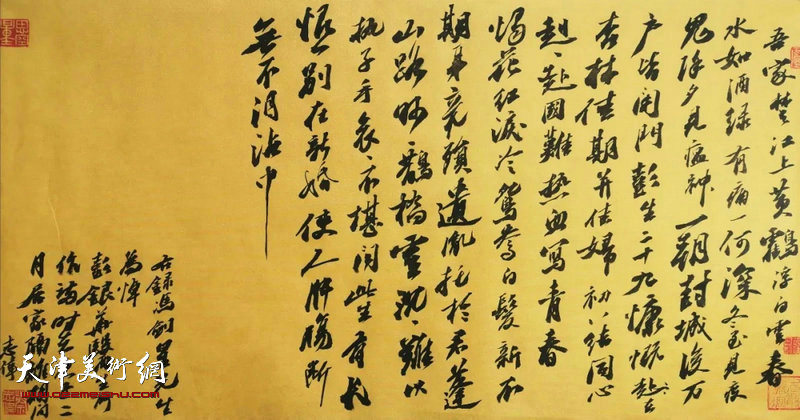 吾家楚江上黄鹤浮白云春
水如酒绿有病一何深冬至见疫
鬼除夕见瘟神一朝封城后万
户皆闭门彭生二十九慷慨赴
杏林佳期并佳妇初初结同心
赳赳赴国难热血写青春
烛花红泪冷鸳鸯白发新不
期身竟殒遗胤托于君蓬
山路眇眇鹊桥雪沉沉难以
执子手哀哀不堪闻此生有长
恨一别在新婚使人肝肠断
无不泪沾巾
右录冯剑星先生
为悼
彭银华医
作诗时
月居家
天津美术网
www.022meishu.com